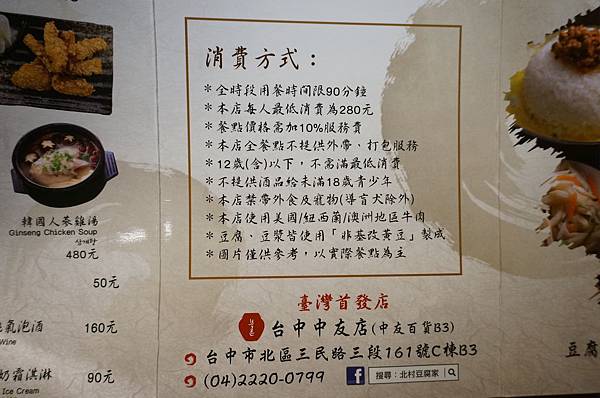 消費方式：
＊全時段用餐時間限90分鐘
＊本店每人最低消費為280元
＊餐點價格需加10%服務費
＊本店全餐點不提供外帶、打包服務
＊12歲(含)以下，不需滿最低消費
＊不提供酒品給未滿18歲青少年
＊本店禁帶外食及寵物(導盲犬除外)
＊本店使用美國/紐西蘭/澳洲地區牛肉
＊豆腐、豆漿皆使用「非基改黃豆」製成
＊圖片僅供參考，以實際餐點為主
臺灣首發店
台中中友店(中友百貨B3)
台中市北區三民路三段161號C棟B3
(04)2220-0799
搜尋：北村豆腐家
韓國人蔘雞湯
Ginseng Chicken Soup
삼계탕
480元
50元
氣泡酒 160元
Wine
奶霜淇淋 90元
Ice Cream
豆腐